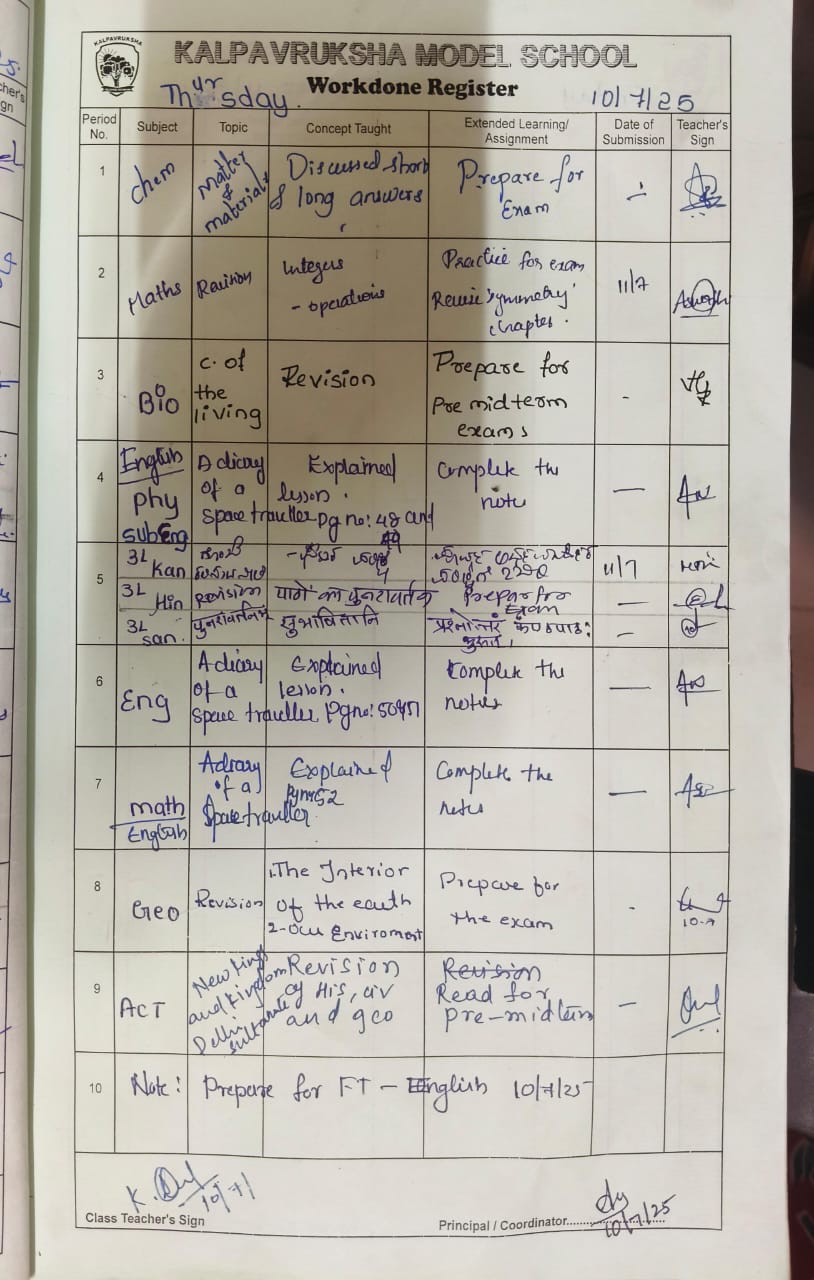 KALPAVRUKSHA
KALPAVRUKSHA MODEL SCHOOL
Workdone Register
Thursday.
10/7/25
Period No.
Subject
Topic
Concept Taught
Extended Learning/ Assignment
Date of Submission
Teacher's Sign
1
Chem
Matter & materials
Discussed short
& long answers
Prepare for
Exam
2
Maths
Revision
Integers
- operations
Practice for exam
Revise 'symmetry'
chapter.
11/7
3
Bio
C. of
the
living
Revision
Prepare for
Pre midterm
exams
4
English
Phy
sub Eng
A diary
of a
space traveller
Explained
lesson.
Pg no: 48 and
49
Complete the
note
5
3L
Kan
11/7
3L
Hin
Revision
Prepare for
Exam
3L
San.
सुभाषितानि
6
Eng
A diary
of a
space traveller
Explained
lesson.
Pg no: 50 & 51
Complete the
notes
7
math
English
A diary
of a
space traveller
Explained
Pg no 52
Complete the
notes
8
Geo
Revision
1. The Interior
of the earth
2- Our Enviroment
Prepare for
the exam
10-7
9
ACT
New kings
and kingdom
Delhi
sultanate
Revision
of His, civ
and geo
Revision
Read for
pre-midterm
10
Note: Prepare for FT - English 10/7/25
K.
10/7/
Class Teacher's Sign
10/7/25
Principal / Coordinator